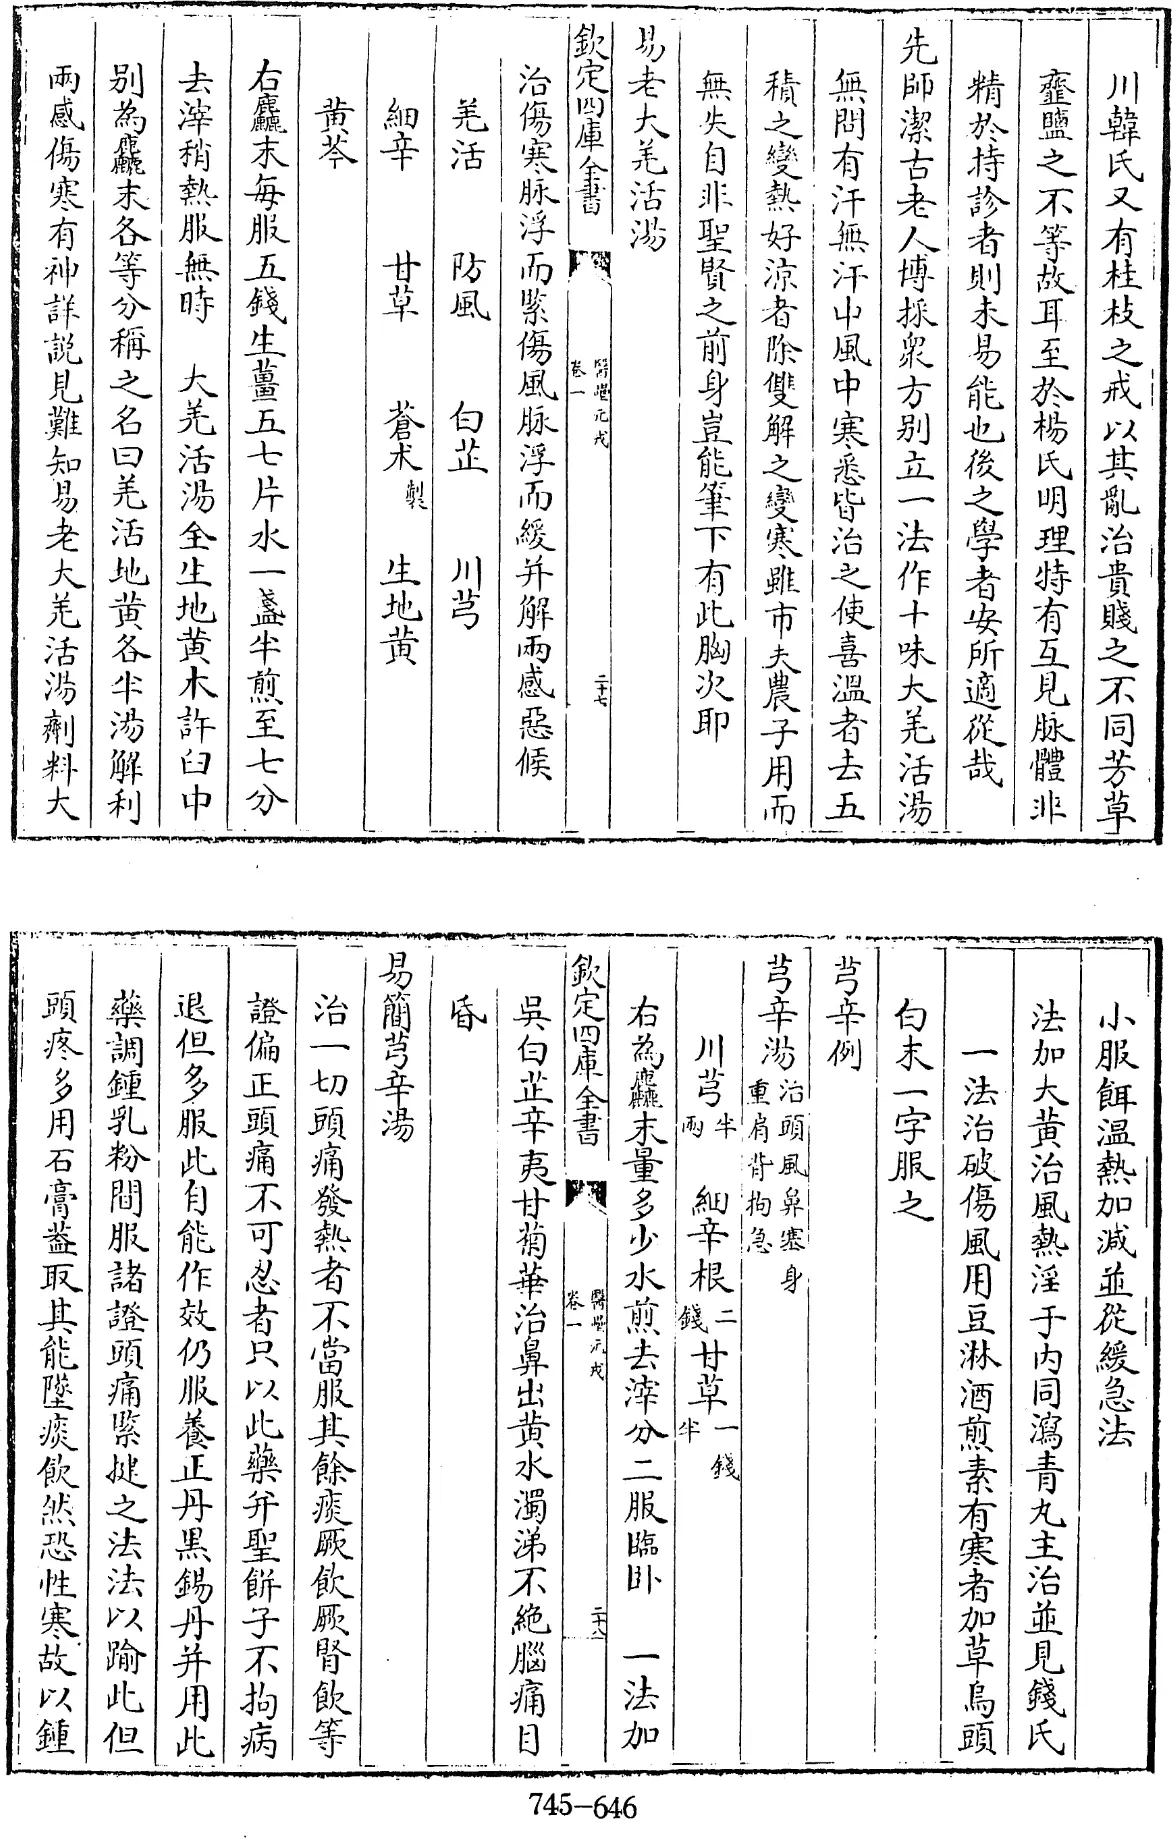 川韓氏又有桂枝之戒以其亂治貴賤之不同芳草
虀鹽之不等故耳至於楊氏明理特有互見脉體非
精於持診者則未易能也後之學者安所適從哉
先師潔古老人博採衆方别立一法作十味大羌活湯
無問有汗無汗中風中寒悉皆治之使喜溫者去五
積之變熱好涼者除雙解之變寒雖市夫農子用而
無失自非聖賢之前身豈能筆下有此胸次耶
易老大羌活湯
欽定四庫全書
醫壘元戎
卷一
二十七
治傷寒脉浮而緊傷風脉浮而緩并解兩感惡候
羌活 防風 白芷 川芎
細辛 甘草 蒼术製 生地黄
黄芩
右麤末每服五錢生薑五七片水一盞半煎至七分
去滓稍熱服無時 大羌活湯全生地黄木許臼中
别為麤末各等分稱之名曰羌活地黄各半湯解利
兩感傷寒有神詳説見難知易老大羌活湯劑料大
小服餌溫熱加減並從緩急法
法加大黄治風熱淫于内同瀉青丸主治並見錢氏
一法治破傷風用豆淋酒煎素有寒者加草烏頭
白末一字服之
芎辛例
芎辛湯治頭風鼻塞身重肩背拘急
川芎半兩 細辛根二錢 甘草一錢半
右為麤末量多少水煎去滓分二服臨卧 一法加
欽定四庫全書
醫壘元戎
卷一
二十八
吳白芷辛夷甘菊華治鼻出黄水濁涕不絶腦痛目
昏
易簡芎辛湯
治一切頭痛發熱者不當服其餘痰厥飲厥腎飲等
證偏正頭痛不可忍者只以此藥并聖餅子不拘病
退但多服此自能作效仍服養正丹黑錫丹并用此
藥調鍾乳粉間服諸證頭痛緊捷之法法以踰此但
頭疼多用石膏葢取其能墜痰飲然恐性寒故以鍾
745-646